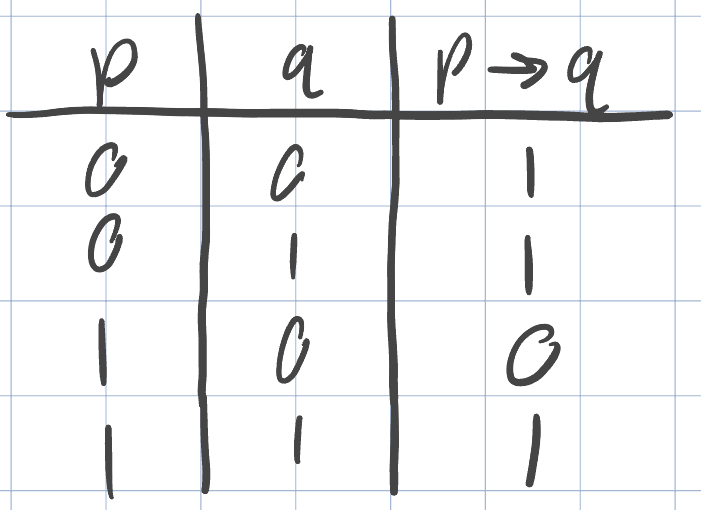 p q p → q
0 0 1
0 1 1
1 0 0
1 1 1